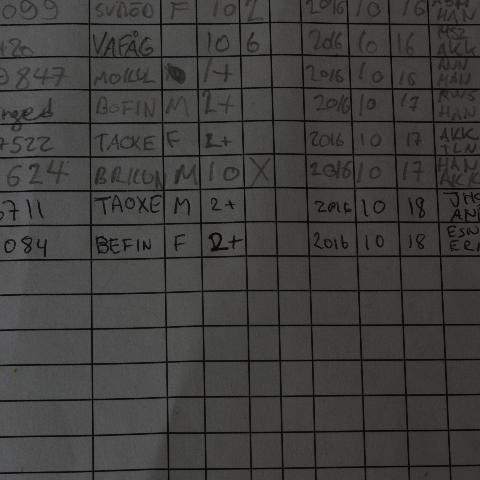 099 SVRED F 10 2 2016 10 16 HAN
480 VAFÅG 10 6 2016 10 16 MSZ AKK
0847 MOKUL 1+ 2016 10 16 ANN HAN
nged BOFIN M 2+ 2016 10 17 RWS HAN
7522 TAOXE F 2+ 2016 10 17 AKK TLN
624 BRKON M 10 X 2016 10 17 HAN AKK
5711 TAOXE M 2+ 2016 10 18 JHS AN
084 BEFIN F 2+ 2016 10 18 ESN ER